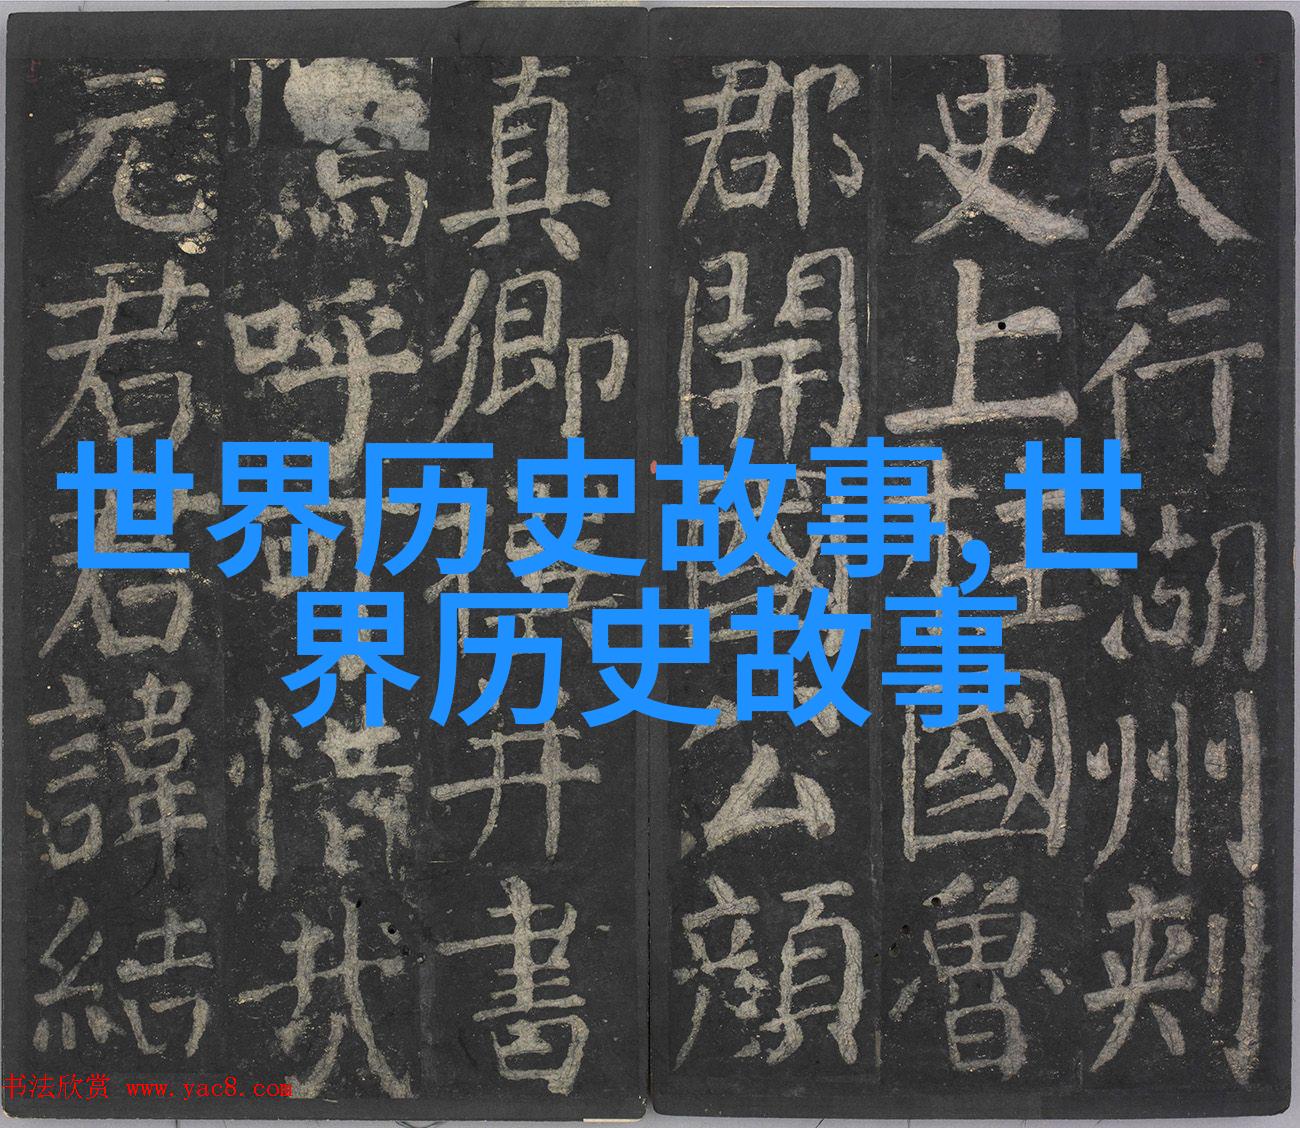 夫行湖州刺
史上柱國魯
郡開國公顏
真卿撰并書
嗚呼可惜哉
元君君諱結
世界历史故事,世
界历史故事
书法欣赏 www.yac8.com